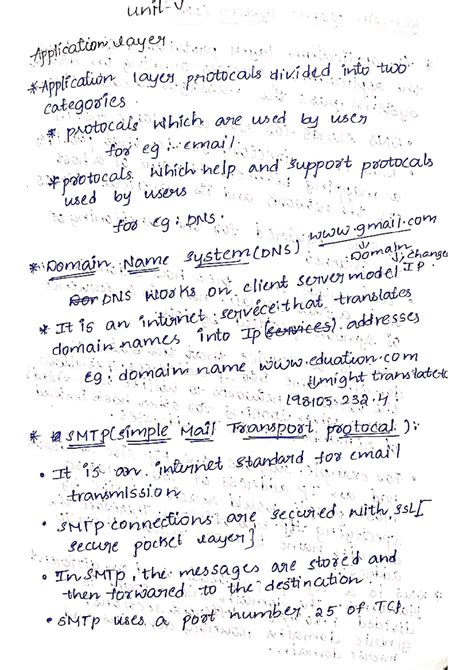 unit-V
Application layer.
*Application layer protocals divided into two
categories.
* protocals which are used by user
for eg: email.
*protocals which help and support protocals
used by users
for eg: DNS.
www.gmail.com
Domain change
IP
* Domain Name System(DNS)
DNS works on client server model
* It is an internet service that translates
domain names into Ip(services). addresses
Eg: domain name www.eduation.com
might translate to
198.105.232.4.
* SMTP(simple Mail Transport protocal):
• It is an internet standard for email
transmission
• SMTP connections are secured with SSL[
secure pocket layer]
• In SMTP, the messages are stored and
then forwared to the destination.
• SMTP uses a port number 25 of TCP.